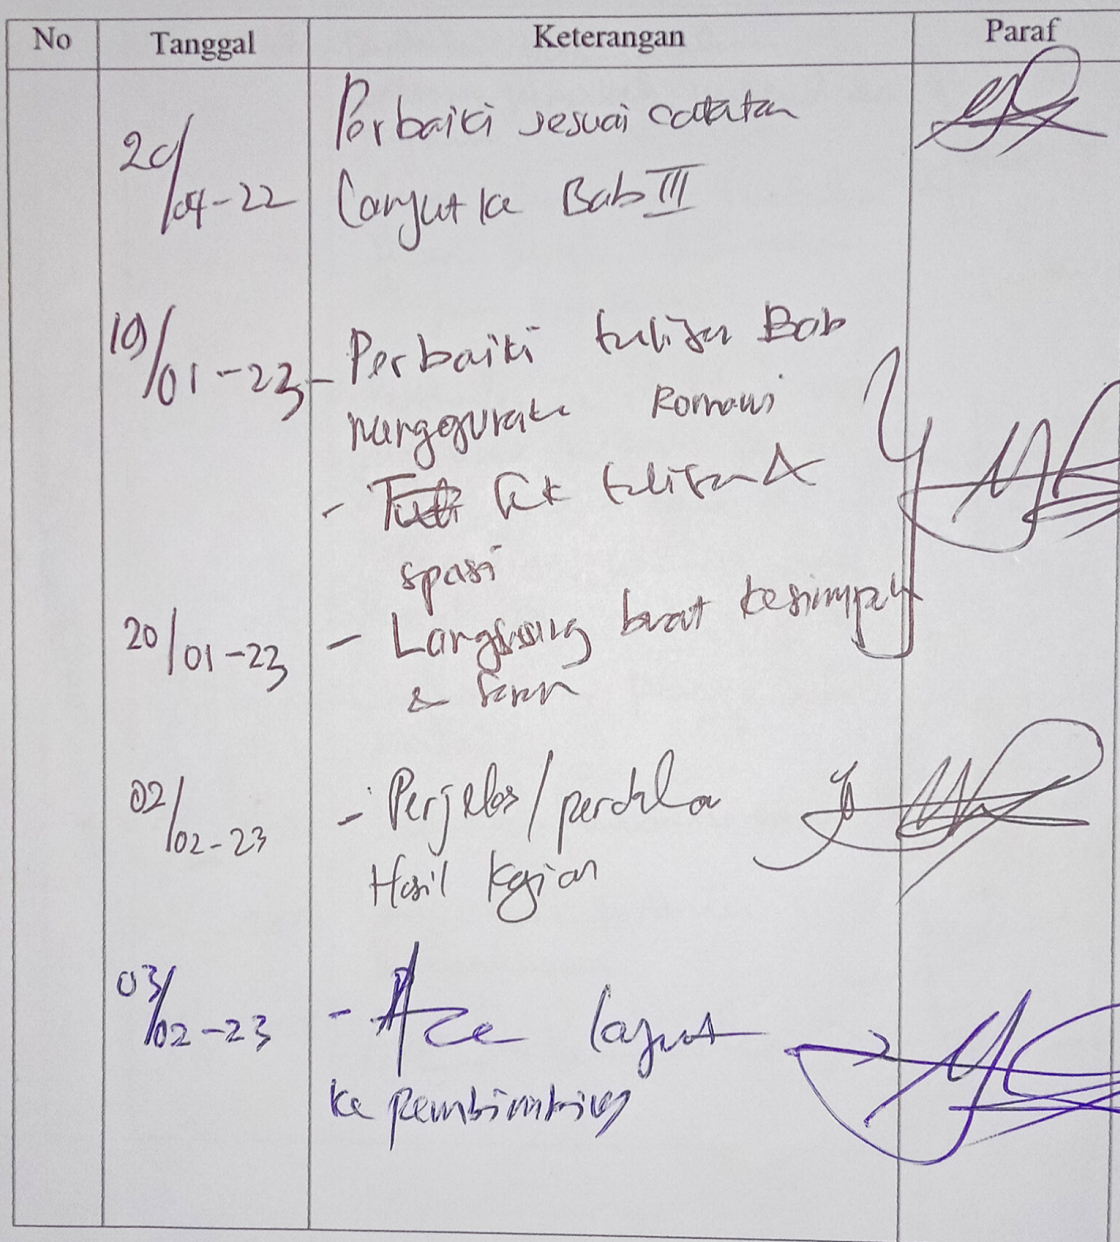 No Tanggal Keterangan Paraf
Perbaiki sesuai catatan
20/04-22 Lanjut ke Bab III
19/01-23 - Perbaiki tulisan Bab
Romawi
- tulisan
spasi
20/01-23 - Langsung buat kesimpul
& Saran
02/02-23 - Perjelas/
Hasil Kajian
03/02-23 - Acc lanjut
ke pembimbing